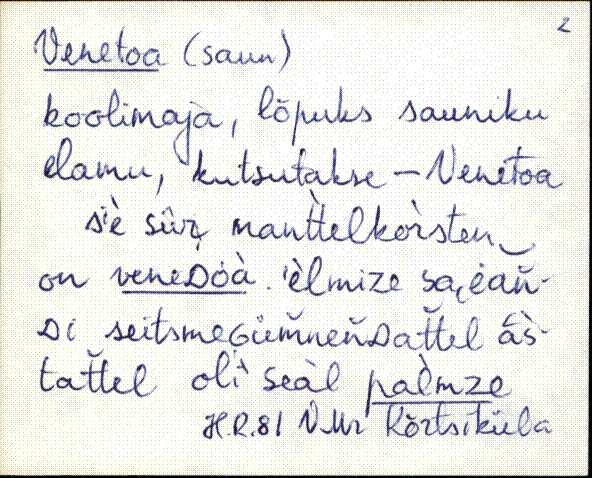 2
Venetoa (saun)
koolimaja, lõpuks sauniku
elamu, kutsutakse – Venetoa
s'è sûr manttelkorsten
on veneDòà. èlmize
Di seitsmeGümneńDattel
tattel oli seàl pàlmze
H.R.81 V.Mr Kõrtsiküla